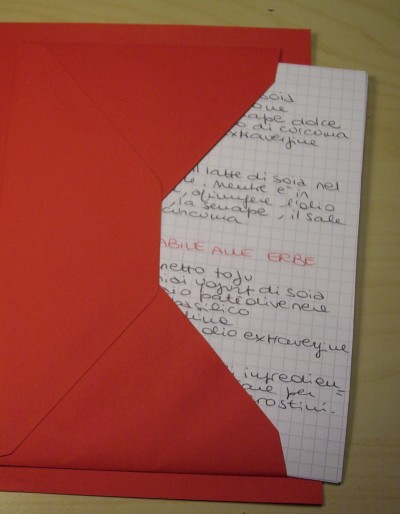 soia
one
nape dolce
o di curcuma
extravergine
il latte di soia nel
e. Mentre è in
, aggiungere l'olio
, la senape, il sale
curcuma
ABILE ALLE ERBE
netto tofu
iai yogurt di soia
io paté olive nere
basilico
olio extravergine
i ingredien=
are per
rostini.